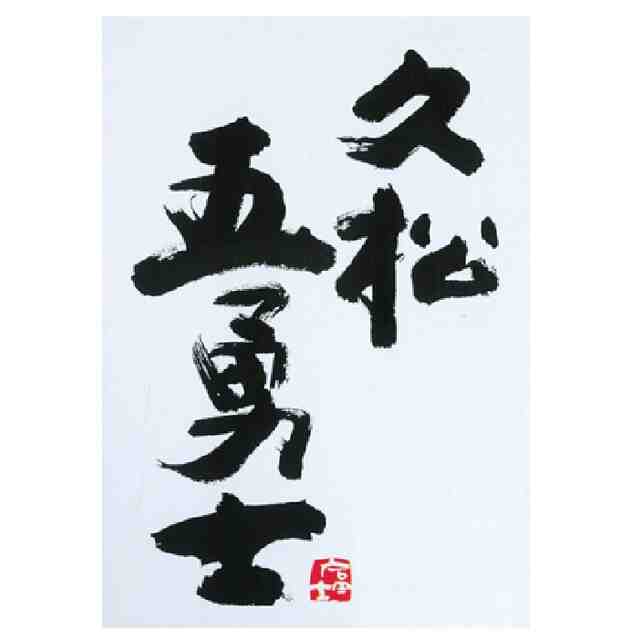 久松
五勇士